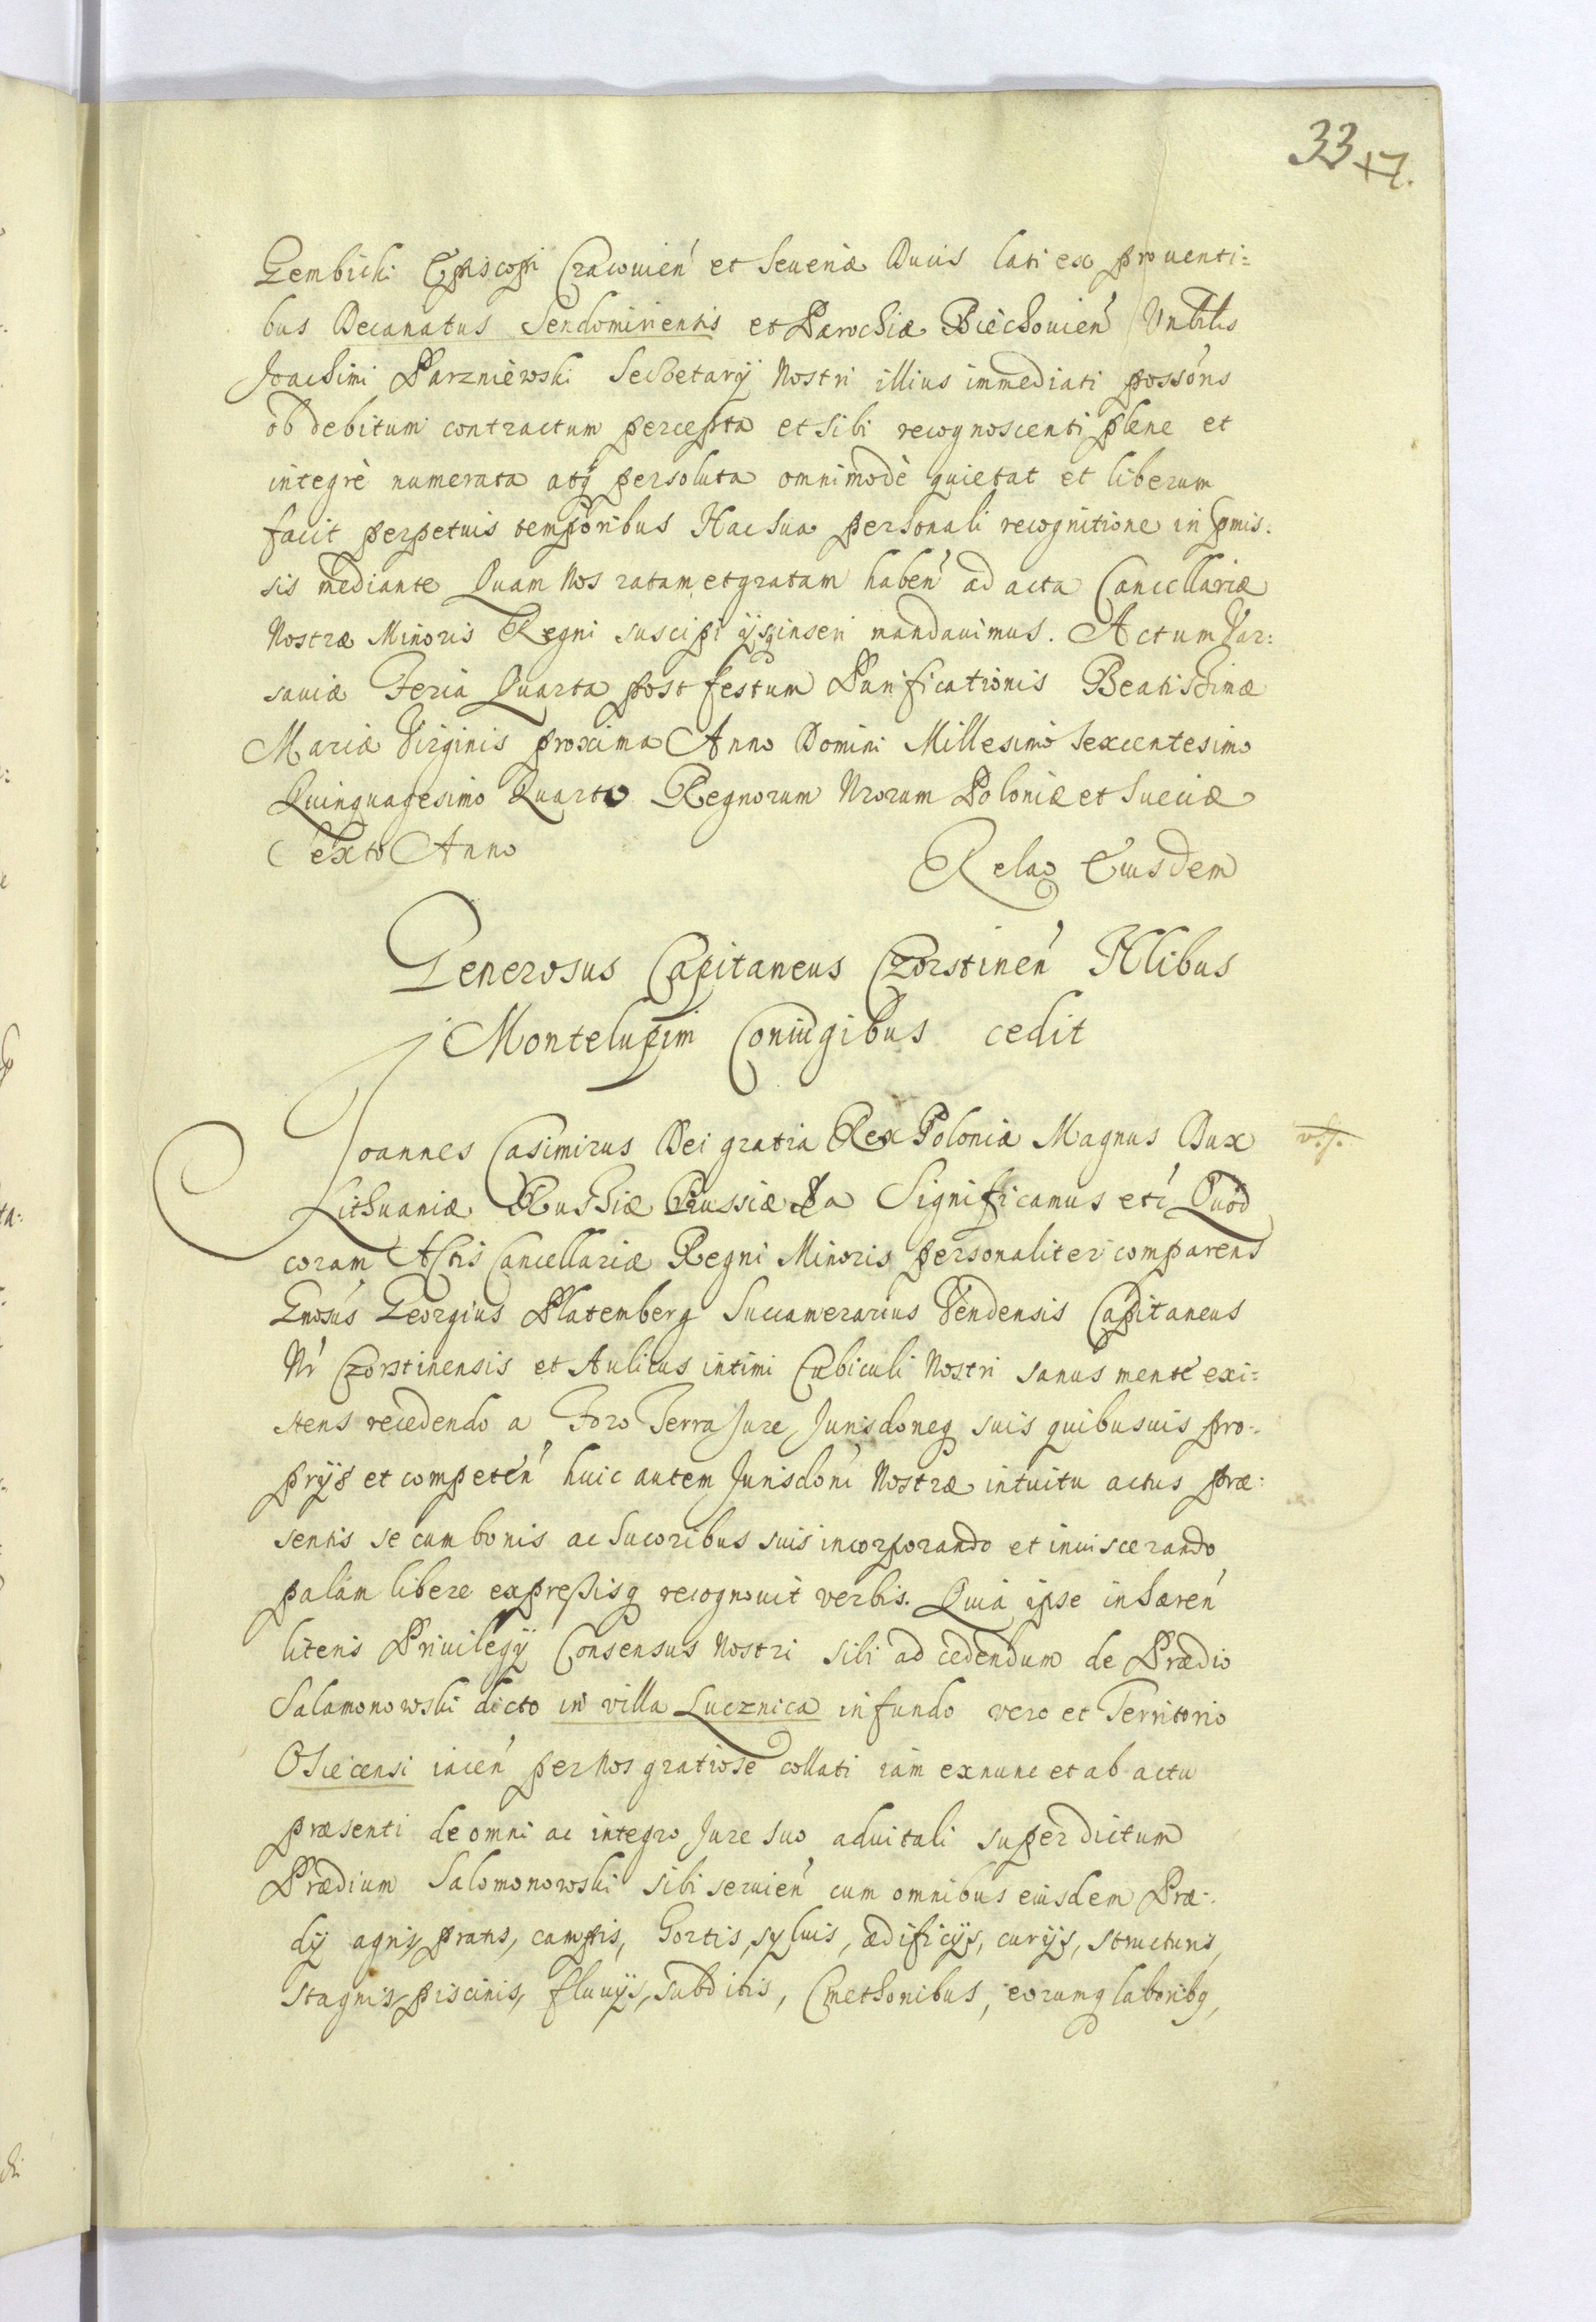 33 17.
Gembicki Episcopi Cracouien et Seueriæ Ducis lati ex prouenti=
bus Decanatus Sendomiriensis et Parochiæ Biechouien Vnblis
Joachimi Parzniewski Secretarÿ Nostri illius immediati possons
ob debitum contractum percepta et sibi recognoscenti plene et
integrè numerata atq persoluta omnimodè quietat et liberum
facit perpetuis temporibus Hac sua personali recognitione in pmis:
sis mediante Quam Nos ratam et gratam haben ad acta Cancellariæ
Nostræ Minoris Regni suscipi ÿsq inseri mandauimus. Actum Var:
sauiæ Feria Quarta post festum Purificationis Beatissimæ
Mariæ Virginis proxima Anno Domini Millesimo Sexcentesimo
Quinquagesimo Quarto Regnorum Nrorum Poloniæ et Sueciæ
Sexto Anno
Relao Eiusdem
Generosus Capitaneus Czorstinen Nlibus
Montelupim Coniugibus cedit
Joannes Casimirus Dei gratia Rex Poloniæ Magnus Dux
Lithuaniæ Russiæ Prussiæ &a Significamus eti Quod
coram Actis Cancellariæ Regni Minoris personaliter comparens
Gnosus Georgius Platemberg Succamerarius Vendensis Capitaneus
Nr Czorstinensis et Aulicus intimi Cubiculi Nostri sanus mente exi=
stens recedendo a Foro Terra Jure Jurisdoneq suis quibusuis pro-
prÿs et competen huic autem Jurisdoni Nostræ intuitu actus præ:
sentis se cum bonis ac Sucoribus suis incorporando et inuiscerando
palam libere expreßisq recognouit verbis. Quia ipse inhæren
literis Priuilegÿ Consensus Nostri sibi ad cedendum de Prædio
Salamonowski dicto in villa Lucznica in fundo vero et Territorio
Osiecensi iacen per Nos gratiose collati iam ex nunc et ab actu
præsenti de omni ac integro Jure suo aduitali super dictum
Prædium Salomonowski sibi seruien cum omnibus eiusdem Præ-
dÿ agris, pratis, campis, hortis, syluis, ædificÿs, curÿs, structuris,
stagnis, piscinis, fluuÿs, subditis, Cmethonibus, eorumq laboribq,